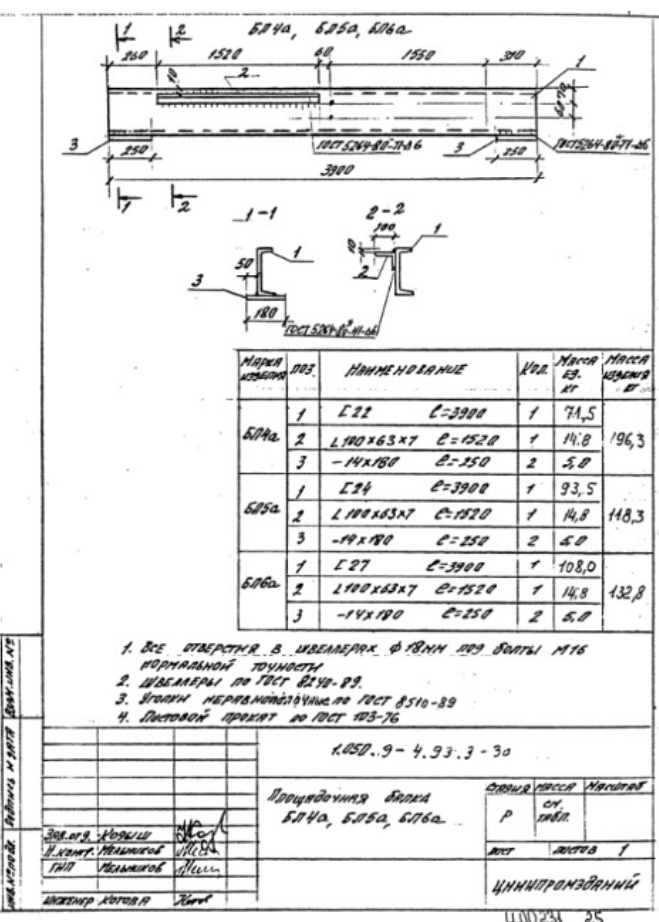 БП4а, БП5а, БП6а
1 2
260 1520 60 1550 310
10 2 1
60 70
3 250 ГОСТ 5264-80-Т1-Δ6 3 250 ГОСТ 5264-80-Т1-Δ6
3900
1 2
1-1 2-2
50 1 3 180
100 10 1 2
ГОСТ 5264-80-Н1-Δ6
МАРКА ИЗДЕЛИЯ ПОЗ. НАИМЕНОВАНИЕ КОЛ. МАССА ЕД. КГ МАССА ИЗДЕЛИЯ КГ
БП4а 1 [22 ℓ=3900 1 71,5 96,3
2 L100x63x7 ℓ=1520 1 14.8
3 -14x180 ℓ=250 2 5,0
БП5а 1 [24 ℓ=3900 1 93,5 118,3
2 L100x63x7 ℓ=1520 1 14,8
3 -14x180 ℓ=250 2 5.0
БП6а 1 [27 ℓ=3900 1 108,0 132,8
2 L100x63x7 ℓ=1520 1 14,8
3 -14x180 ℓ=250 2 5,0
1. ВСЕ ОТВЕРСТИЯ В ШВЕЛЛЕРАХ ф 18ММ ПОД БОЛТЫ М16
НОРМАЛЬНОЙ ТОЧНОСТИ
2. ШВЕЛЛЕРЫ ПО ГОСТ 8240-89.
3. УГОЛКИ НЕРАВНОПОЛОЧНЫЕ ПО ГОСТ 8510-89
4. ЛИСТОВОЙ ПРОКАТ ПО ГОСТ 103-76
1.050.9-4.93.3-30
ПЛОЩАДОЧНАЯ БАЛКА
БП4а, БП5а, БП6а
СТАДИЯ МАССА МАСШТАБ
Р СМ. ТАБЛ.
ЛИСТ ЛИСТОВ 1
ЦНИИПРОМЗДАНИЙ
ЗАВ. ОТД. КОДЫШ
Н. КОНТР. МЕЛЬНИКОВ
ГИП МЕЛЬНИКОВ
ИНЖЕНЕР КОТОВА
ИНВ.№ПОДЛ. ПОДПИСЬ И ДАТА ВЗАМ.ИНВ.№
Ц00231 25